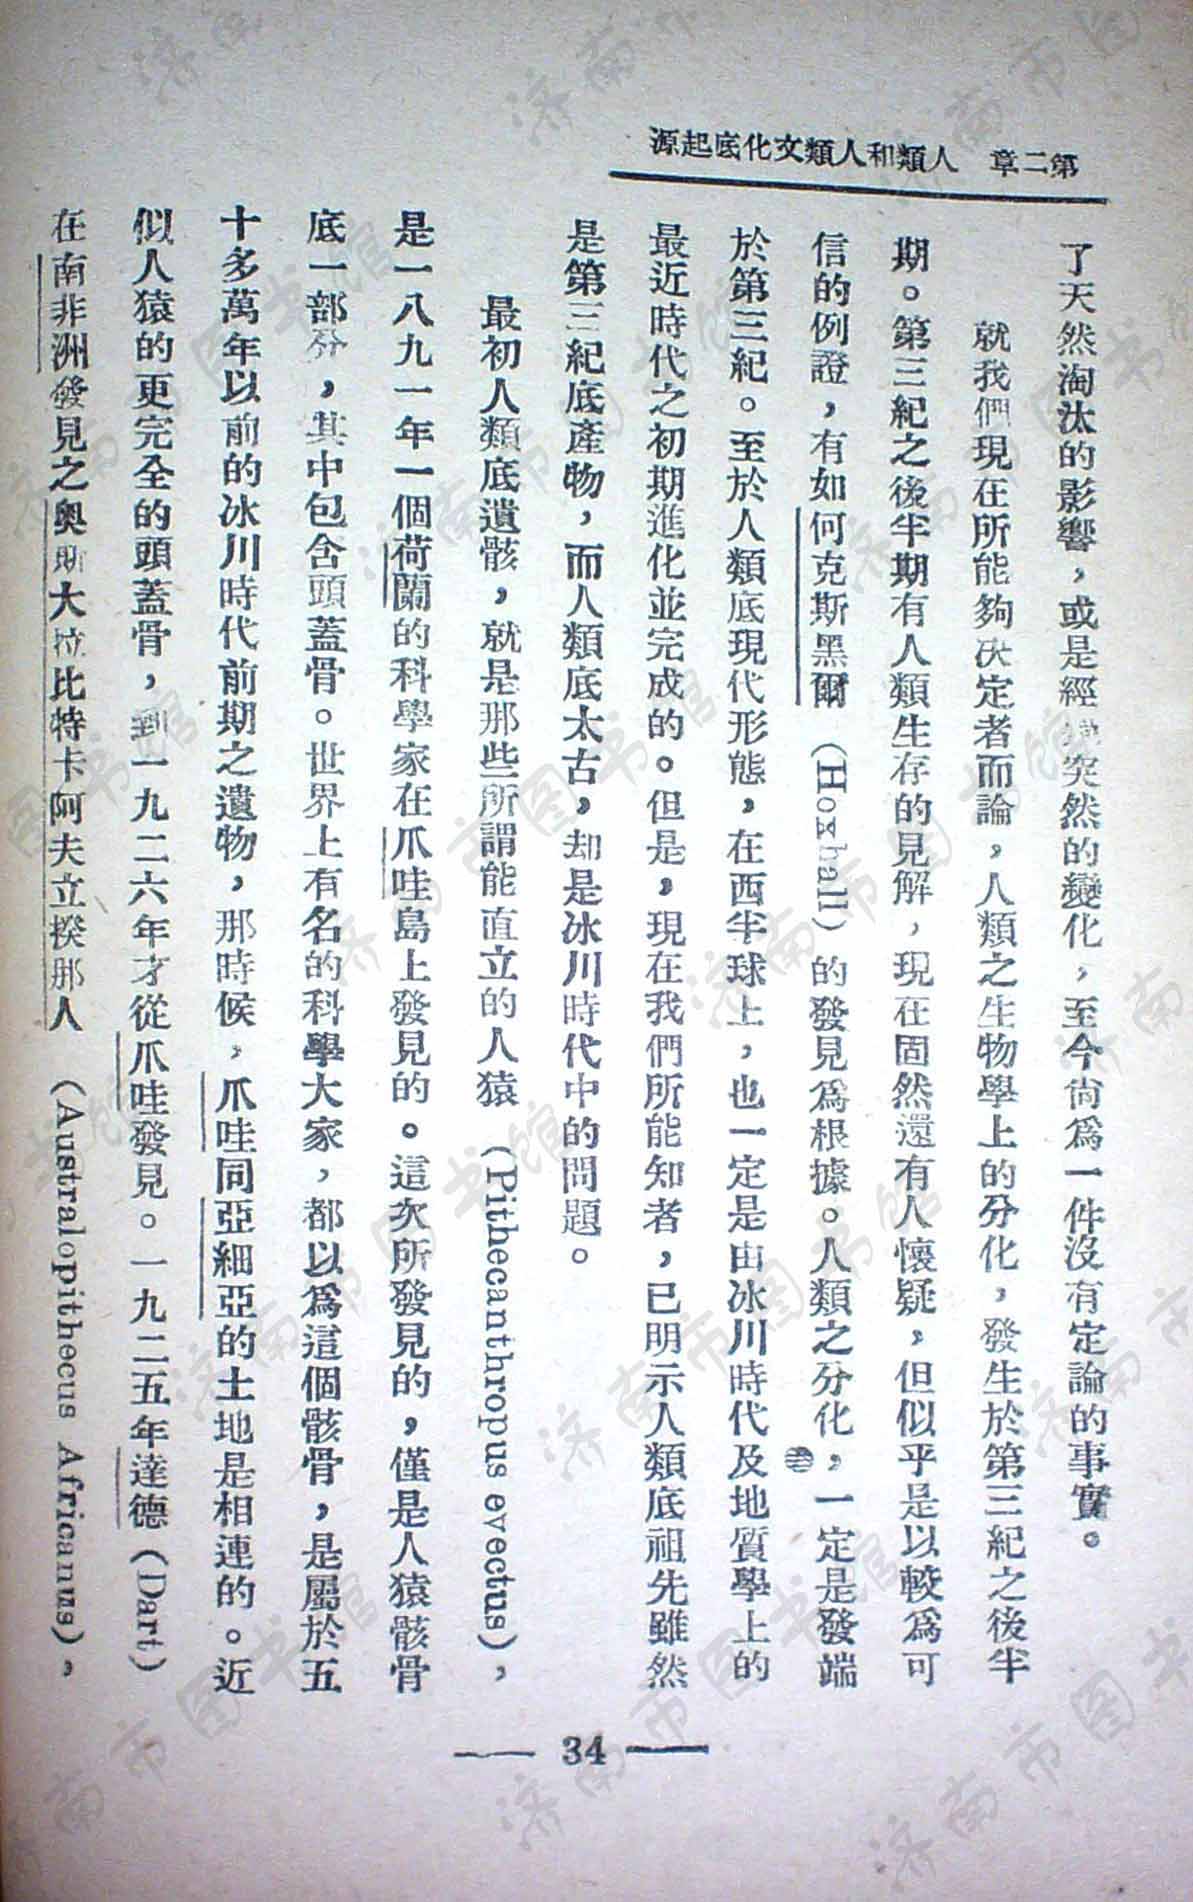 第二章 人類和人類文化底起源
了天然淘汰的影響，或是經過突然的變化，至今尙爲一件沒有定論的事實。
就我們現在所能夠決定者而論，人類之生物學上的分化，發生於第三紀之後半
期。第三紀之後半期有人類生存的見解，現在固然還有人懷疑，但似乎是以較爲可
信的例證，有如何克斯黑爾（Hoxhall）的發見爲根據。人類之分化，一定是發端
於第三紀。至於人類底現代形態，在西半球上，也一定是由冰川時代及地質學上的
最近時代之初期進化並完成的。但是，現在我們所能知者，已明示人類底祖先雖然
是第三紀底產物，而人類底太古，却是冰川時代中的問題。
最初人類底遺骸，就是那些所謂能直立的人猿（Pithecanthropus evectus），
是一八九一年一個荷蘭的科學家在爪哇島上發見的。這次所發見的，僅是人猿骸骨
底一部分，其中包含頭蓋骨。世界上有名的科學大家，都以爲這個骸骨，是屬於五
十多萬年以前的冰川時代前期之遺物，那時候，爪哇同亞細亞的土地是相連的。近
似人猿的更完全的頭蓋骨，到一九二六年才從爪哇發見。一九二五年達德（Dart）
在南非洲發見之奧斯大拉比特卡阿夫立揆那人（Australopithecus Africanus），
— 34 —
济南市图书馆